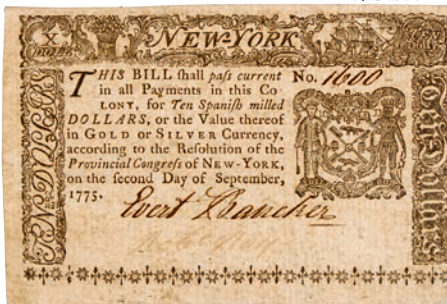 X
DOLLS.
NEW-YORK
THIS BILL ſhall paſs current
in all Payments in this Co
LONY, for Ten Spaniſh milled
DOLLARS, or the Value thereof
in GOLD or SILVER Currency,
according to the Reſolution of the
Provincial Congreſs of NEW-YORK,
on the ſecond Day of September,
1775.
No. 1600
Evert Bancker
TEN DOLLARS
Ten Dollars